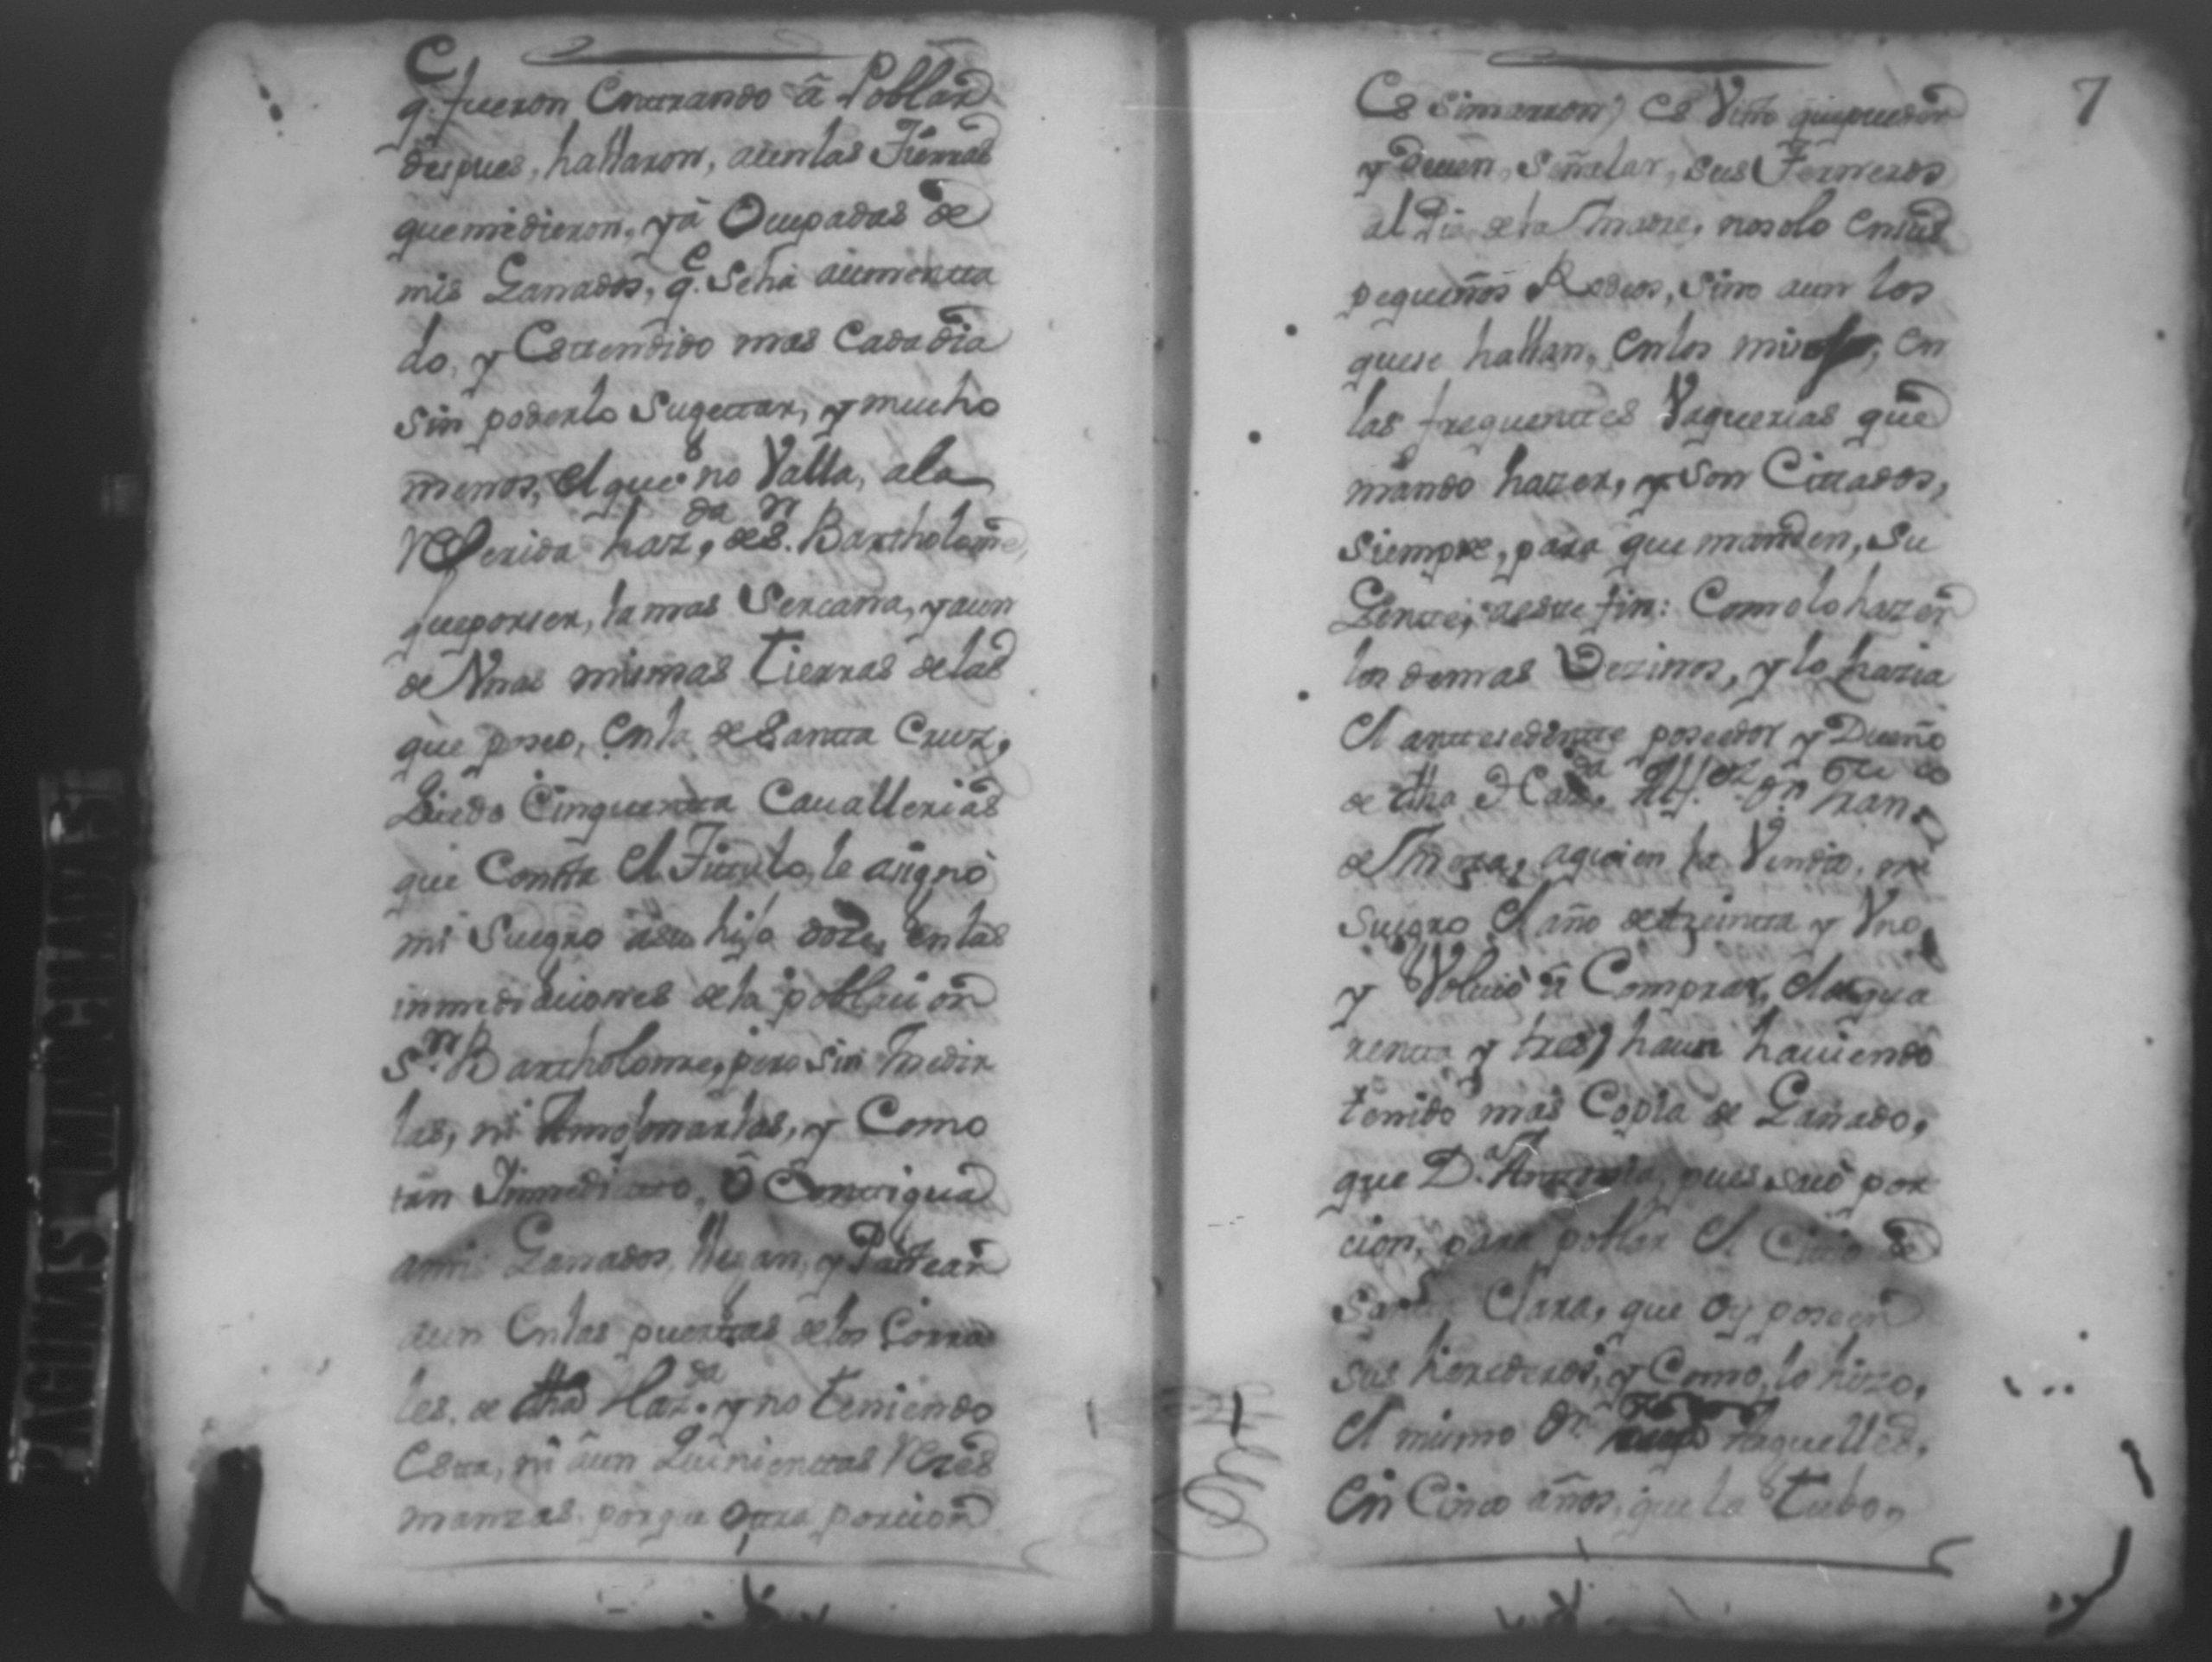 q.e fueron Enttrando â Poblar
despues, hallaron, aun las Tierras
que midieron, yà Ocupadas de
mis Ganados, q.e Se hà aumentta
do, y Esttendido mas Cada dia
sin poderlo Sugettar, y mucho
menos, el que no Valla, a la
Referida haz.da de S.n Bartholome,
que por ser, la mas Sercana, y aun
de Unas mismas tierras de las
que poseo, en la de Santta Cruz,
Quedo Cinquentta Cauallerias
que Constta el Titulo, le asignò
mi Suegro a su hijo Joze, en las
inmediaciones de la poblacion
S.n Bartholome, pero sin medir
las, ni Amojonarlas, y Como
tan Inmediatto, ô Conttigua
a mis Ganados, llegan, y Pastean
aun en las puerttas de los Corra
les, de dha Haz.da y no teniendo
Estta, ni aun Quinienttas Reses
manzas, porque otra porcion
7
Es Simarron) Es Visto que pueden
y deuen, Señalar, sus Terneros
al Pie de la Madre, no solo en sus
pequeños Rodeos, Sino aun los
que se hallan, en los mios, en
las frequenttes Vaquerias que
mando hazer, y Son Cittados,
siempre, para que manden, Su
Gentte, a estte fin: Como lo hazen
los demas Vezinos, y lo hazia
el anttesedentte poseedor y Dueño
de dha Haz.da Alf.ez Dn Fran.co
de Mora, a quien la Vendio, mi
Suegro el año de treintta y Uno,
y Voluiò â Comprar, el de qua
rentta y tres) haun hauiendo
tenido mas Copia de Ganado,
que D.a Antonia, pues sacò por
cion, para poblar el Citio de
Santta Clara, que oy poseen
sus herederos, y Como lo hizo,
el mismo Dn
en Cinco años, que la tubo,